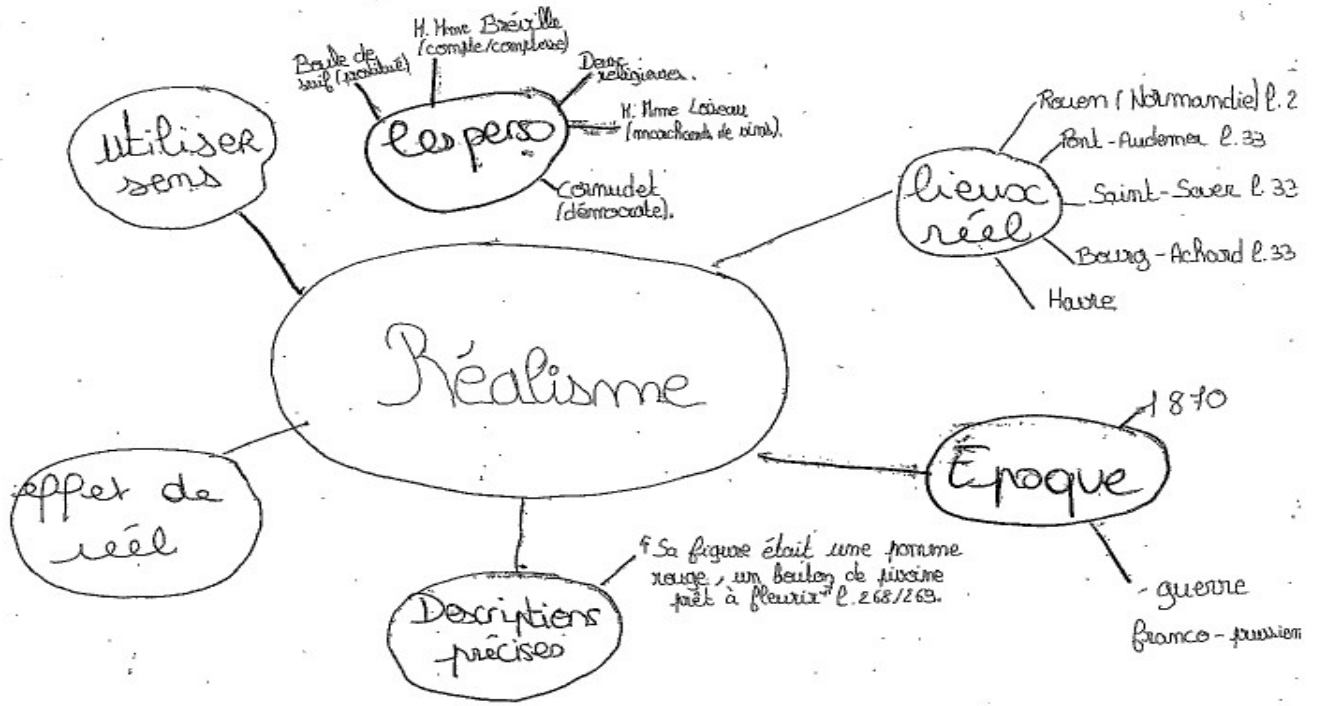 Réalisme
utiliser
sens
les perso
Boule de
suif (prostitué)
M. Mme Bréville
(compte/comptesse)
Deux
religieuses.
M. Mme Loiseau
(marchands de vins).
Cornudet
(démocrate).
lieux
réel
Rouen (Normandie) l. 2
Pont-Audemer l. 33
Saint-Sever l. 33
Bourg-Achard l. 33
Havre
Epoque
1870
- guerre
franco-prussien
Descriptions
précises
"Sa figure était une pomme
rouge, un bouton de pivoine
prêt à fleurir" l. 268/269.
effet de
réél